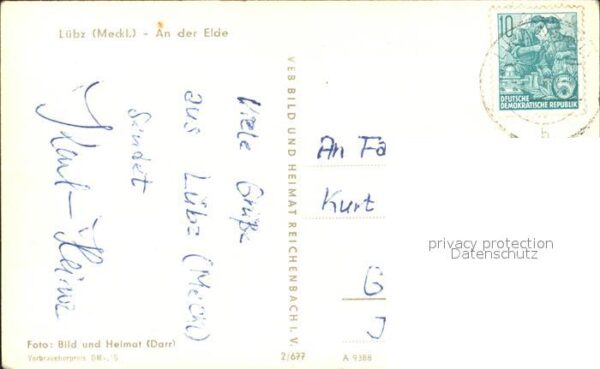 Lübz (Meckl.) - An der Elde
Viele Grüße
aus Lübz (Meckl)
sendet
Karl-Heinz
VEB BILD UND HEIMAT REICHENBACH I. V.
10
DEUTSCHE
DEMOKRATISCHE REPUBLIK
An Fa
Kurt
G
J
privacy protection
Datenschutz
Foto: Bild und Heimat (Darr)
Verbraucherpreis DM
2/677
A 9388